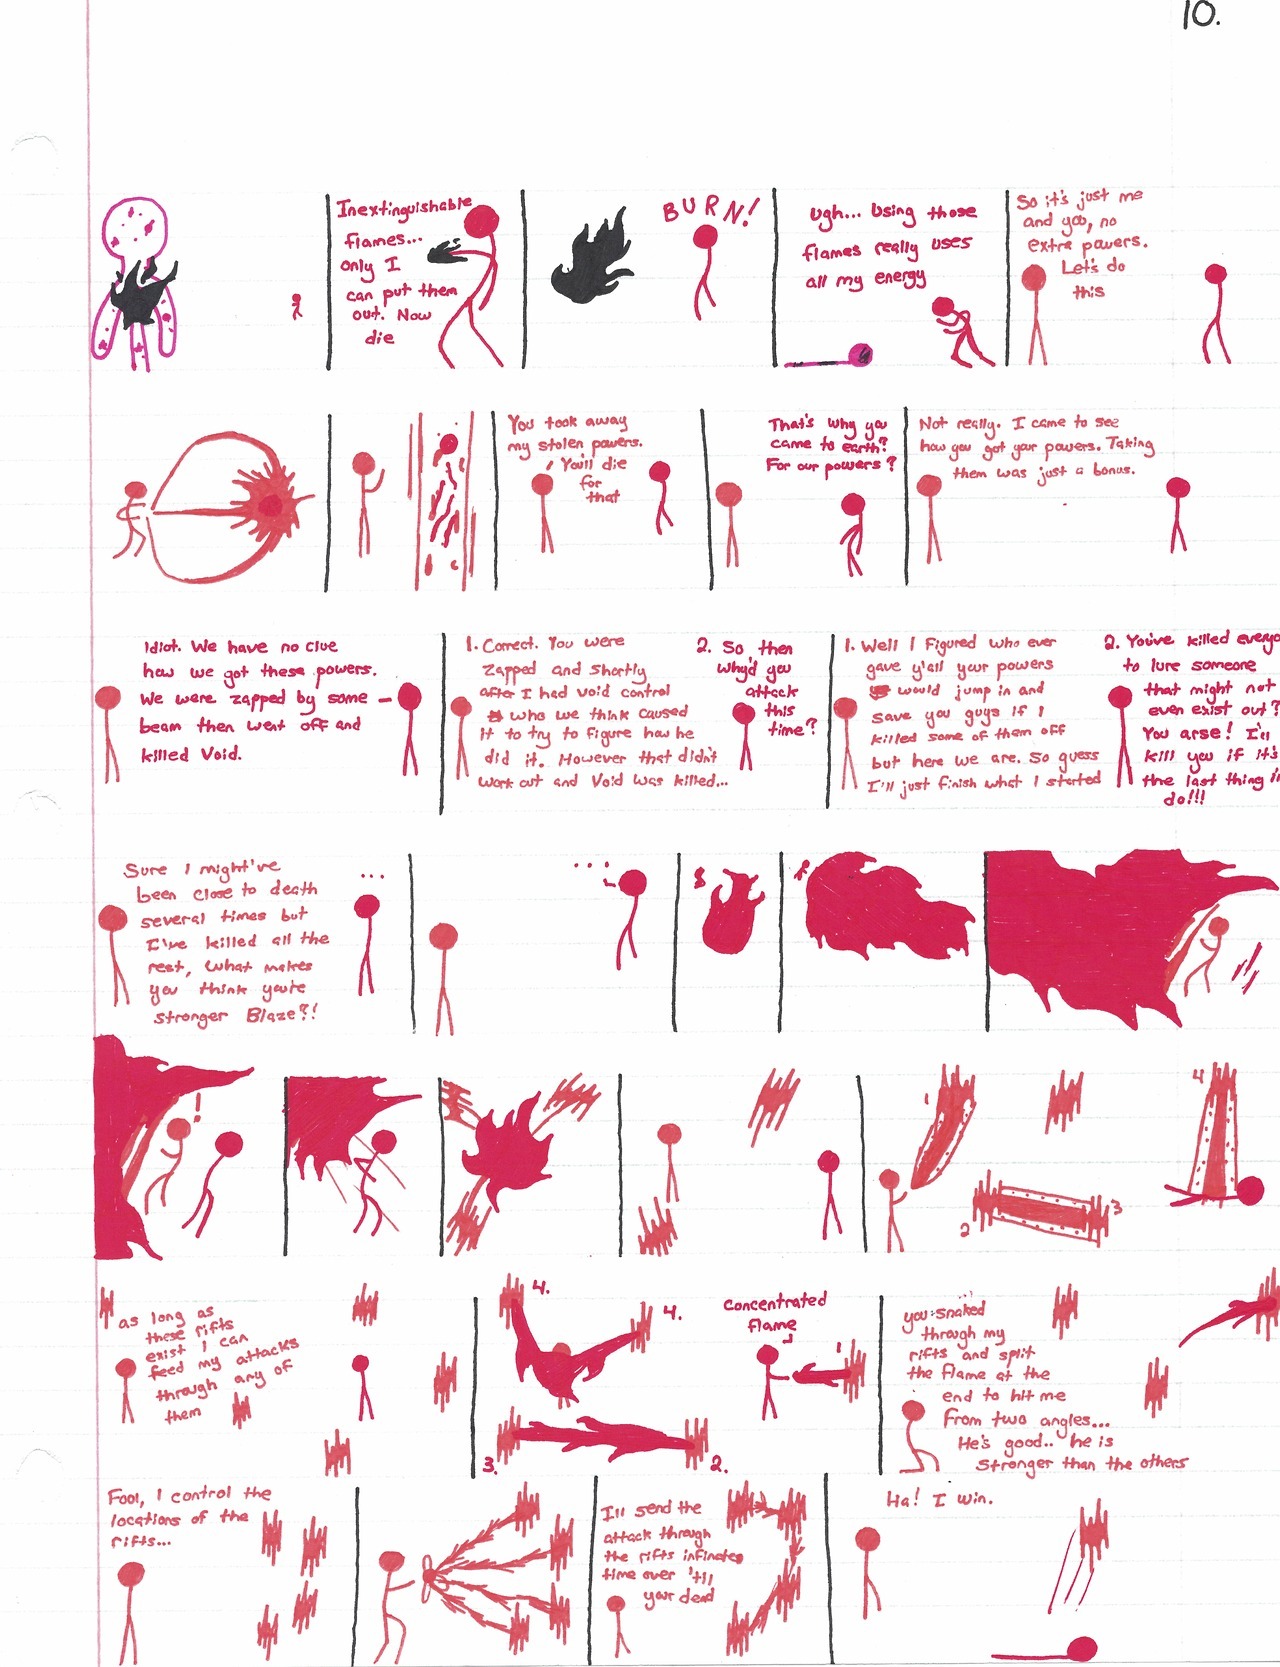 10.
Inextinguishable
flames...
only I
can put them
out. Now
die
BURN!
Ugh... Using those
flames really uses
all my energy
So it's just me
and you, no
extra powers.
Let's do
this
You took away
my stolen powers.
You'll die
for
that
That's why you
came to earth?
For our powers?
Not really. I came to see
how you got your powers. Taking
them was just a bonus.
Idiot. We have no clue
how we got these powers.
We were zapped by some
beam then went off and
killed Void.
1. Correct. You were
zapped and shortly
after I had void control
who we think caused
it to try to figure how he
did it. However that didn't
work out and Void was killed...
2. So then
why'd you
attack
this
time?
1. Well I figured who ever
gave y'all your powers
would jump in and
save you guys if I
killed some of them off
but here we are. So guess
I'll just finish what I started
2. You've killed everyo
to lure someone
that might not
even exist out?
You arse! I'll
kill you if it's
the last thing I
do!!!
Sure I might've
been close to death
several times but
I've killed all the
rest, what makes
you think you're
stronger Blaze?!
...
...
!
1
2
3
4
as long as
these rifts
exist I can
feed my attacks
through any of
them
4.
4.
3.
2.
Concentrated
flame
1
you snaked
through my
rifts and split
the flame at the
end to hit me
from two angles...
He's good.. he is
stronger than the others
Fool, I control the
locations of the
rifts...
I'll send the
attack through
the rifts infinates
time over 'till
your dead
Ha! I win.